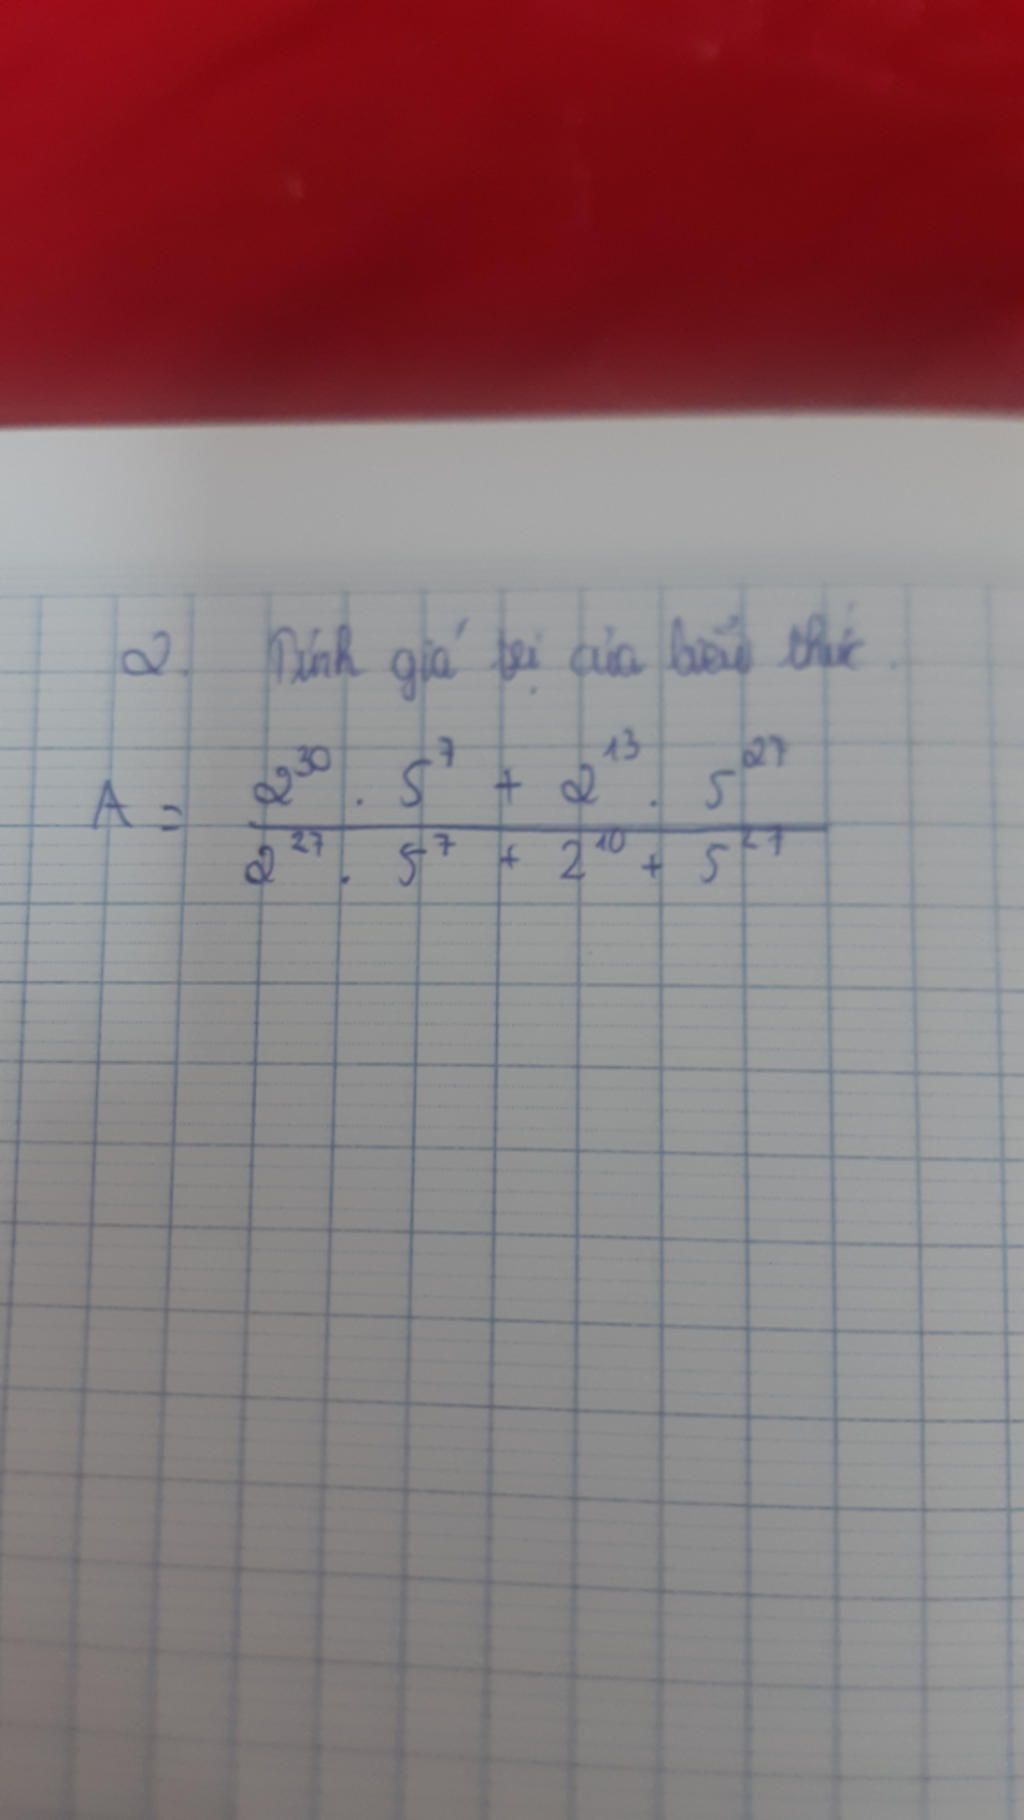 2. Tính giá trị của biểu thức.
A = \frac{2^{30} . 5^{7} + 2^{13} . 5^{27}}{2^{27} . 5^{7} + 2^{10} + 5^{27}}